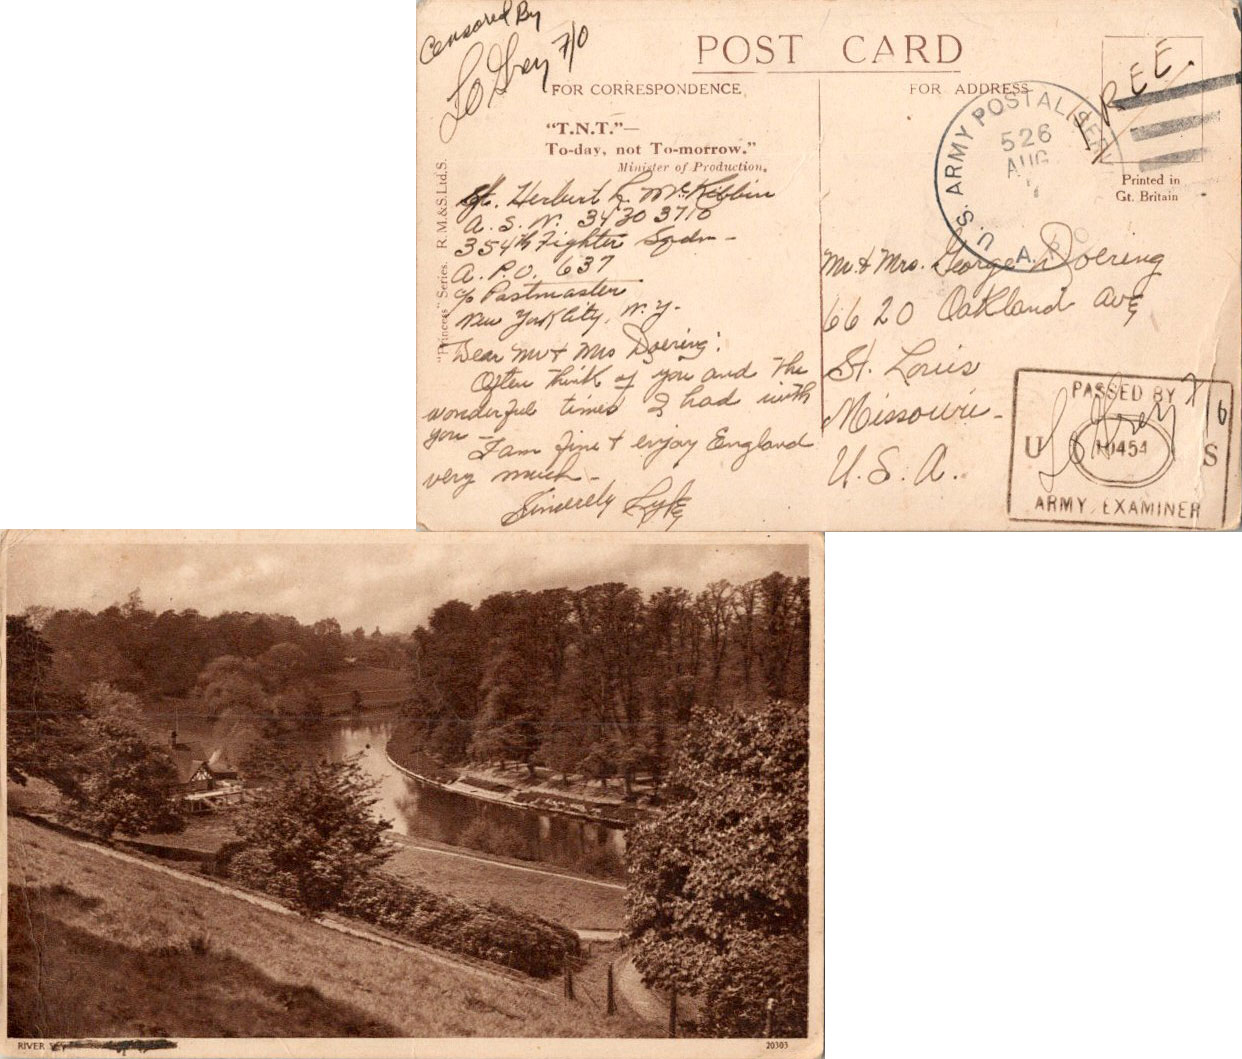 Censored By
7/0
POST CARD
FOR CORRESPONDENCE
FOR ADDRESS
FREE.
"T.N.T."—
To-day, not To-morrow."
Minister of Production,
"Princess" Series. R.M.&S.Ltd.S.
Printed in
Gt. Britain
U.S. ARMY POSTAL SERV
526
AUG
A.P.O.
Sgt. Herbert L. McKibbin
A. S. N. 34303710
354th Fighter Sqdn -
A. P. O. 637
c/o Postmaster
New York City, N. Y.
Dear Mr & Mrs Doering:
Often think of you and the
wonderful times I had with
you -
I am fine & enjoy England
very much -
Sincerely
Mr. & Mrs. George Doering
6620 Oakland Ave
St. Louis
Missouri -
U. S. A.
PASSED BY
U 10454 S
ARMY EXAMINER
RIVER
20303